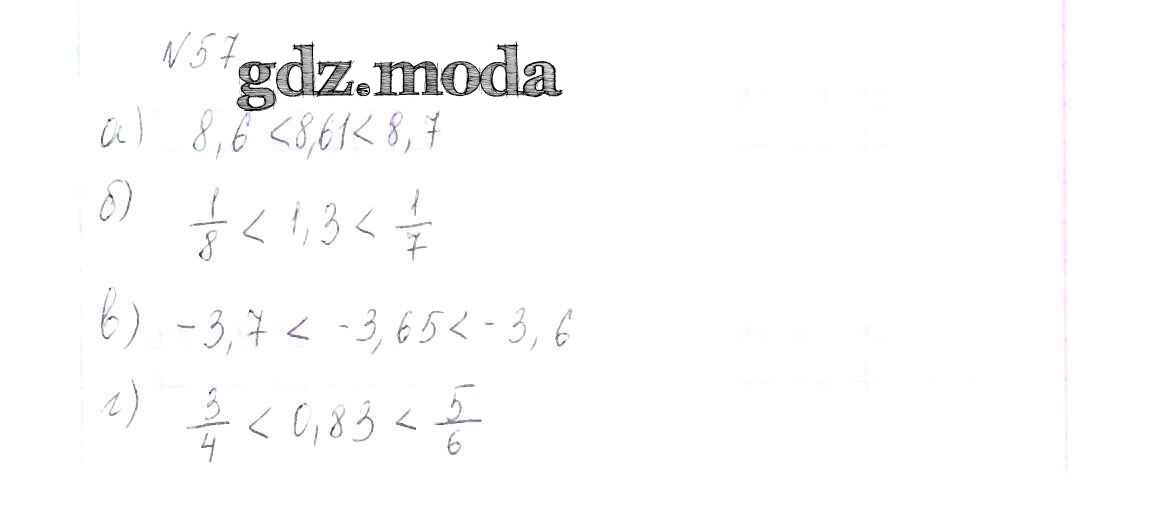 N 57
gdz.moda
а) 8,6 < 8,61 < 8,7
б) 1/8 < 1,3 < 1/7
в) -3,7 < -3,65 < -3,6
г) 3/4 < 0,83 < 5/6